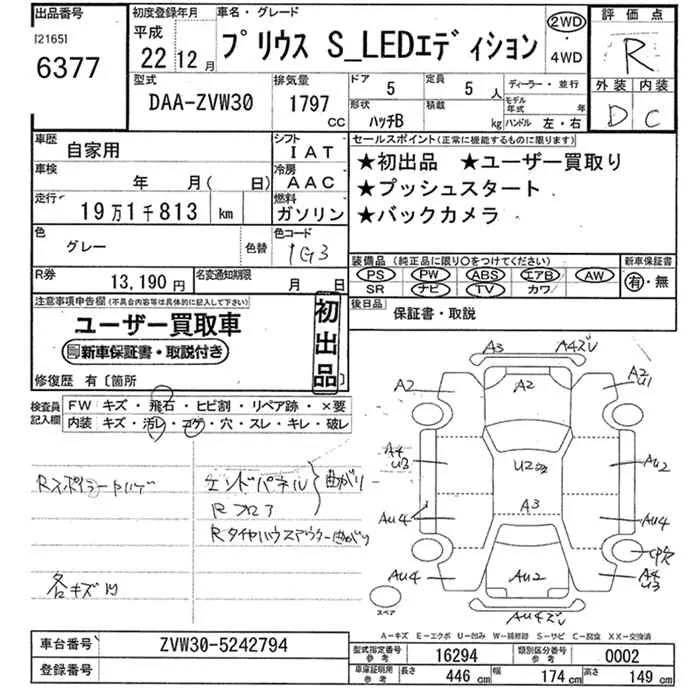 出品番号
[2165]
6377
初度登録年月
平成
22 12 月
車名・グレード
プリウス S_LEDエディション
2WD
・
4WD
評価点
R
外装 内装
D C
型式
DAA-ZVW30
排気量
1797
CC
ドア 5
定員 5 人
形状
ハッチB
積載
kg
ディーラー・並行
モデル年式 年
ハンドル 左・右
車歴
自家用
シフト
IAT
車検
年 月( 日)
冷房
AAC
走行
19万1千813 km
燃料
ガソリン
色
グレー
色替
色コード
1G3
R券
13,190円
名変通知期限
月 日
セールスポイント(正常に機能するものに限ります)
★初出品 ★ユーザー買取り
★プッシュスタート
★バックカメラ
装備品 (純正品に限り○をつけてください)
PS PW ABS エアB AW
SR ナビ TV カワ
新車保証書
有・無
後日品
保証書・取説
注意事項申告欄(不具合内容等は具体的に記入して下さい)
ユーザー買取車
新車保証書・取説付き
初出品
修復歴 有〔箇所 〕
検査員記入欄
FW キズ・飛石・ヒビ割・リペア跡・×要
内装 キズ・汚レ・コゲ・穴・スレ・キレ・破レ
Rスポイラーハゲ
エンドパネル
Rフロア
曲がり
Rタイヤハウスアウター曲がり
各キズリ
A3
A4ズレ
A2
A2
A2
U1
A4
U3
U2
AU2
AU4
A3
AU4
AU4
AU2
A4
U3
AU4ズレ
スペア
A-キズ E-エクボ U-凹み W-補修跡 S-サビ C-腐食 XX-交換済
車台番号
ZVW30-5242794
登録番号
型式指定番号
参考
16294
類別区分番号
参考
0002
車庫証明用
参考
長さ 446 cm
幅 174 cm
高さ 149 cm